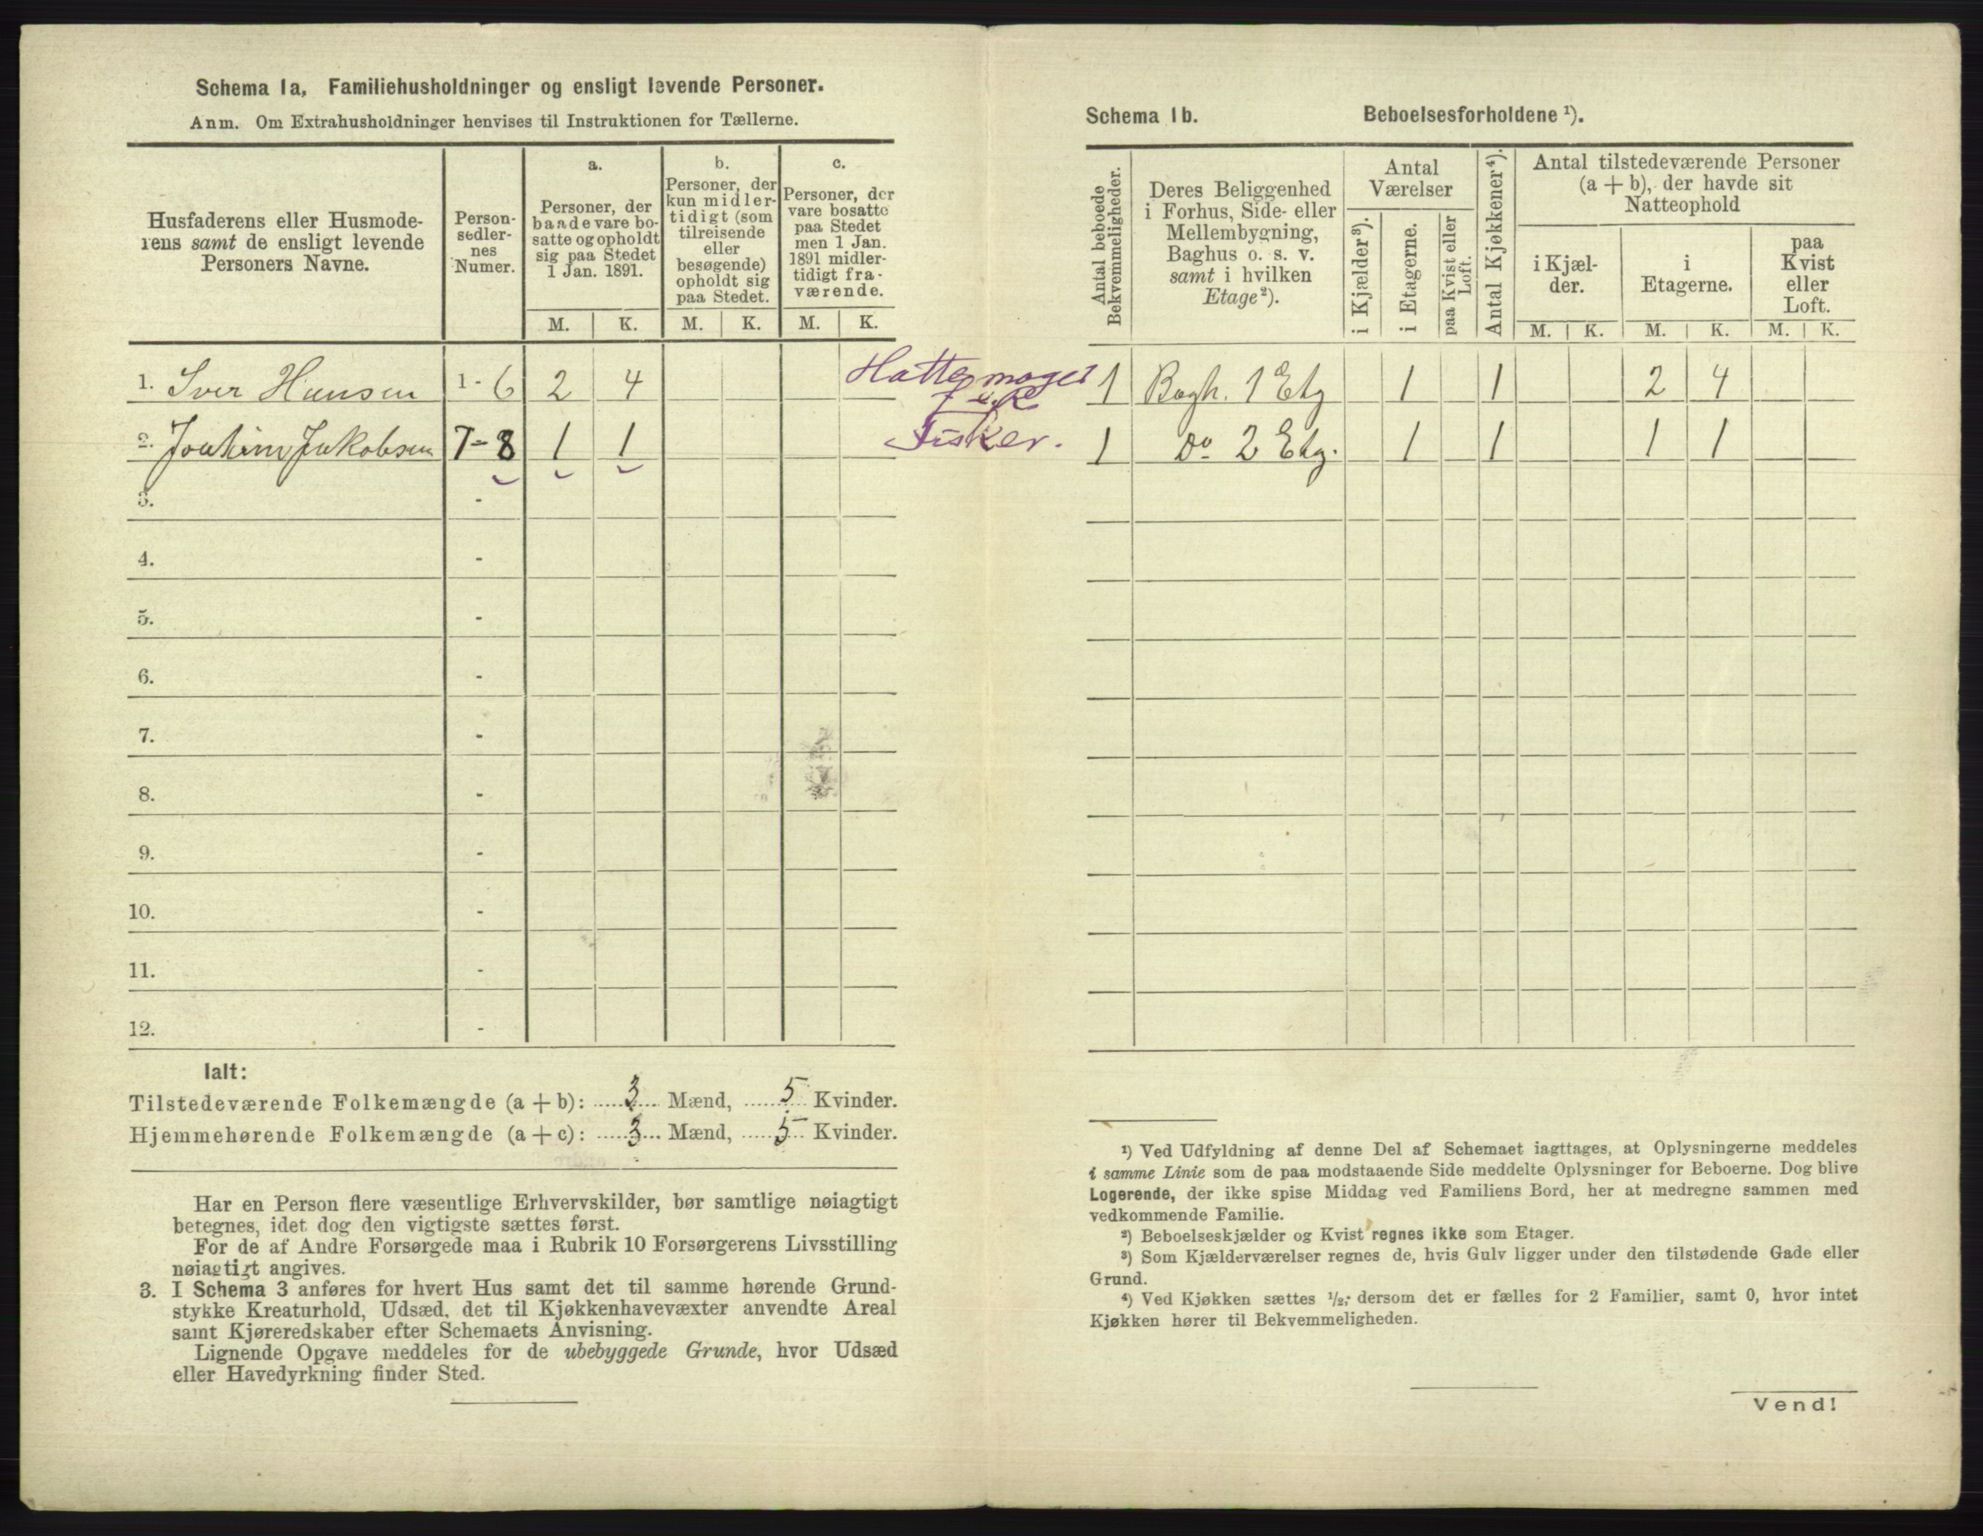 Schema 1a, Familiehusholdninger og ensligt levende Personer.
Anm. Om Extrahusholdninger henvises til Instruktionen for Tællerne.
Husfaderens eller Husmode-
rens samt de ensligt levende
Personers Navne.
Person-
sedler-
nes
Numer.
a.
Personer, der
baade vare bo-
satte og opholdt
sig paa Stedet
1 Jan. 1891.
b.
Personer, der
kun midler-
tidigt (som
tilreisende
eller
besøgende)
opholdt sig
paa Stedet.
c.
Personer, der
vare bosatte
paa Stedet
men 1 Jan.
1891 midler-
tidigt fra-
værende.
M. K. M. K. M. K.
1. Iver Hansen 1 - 6 2 4 Hattemager
2. Joakim Jakobsen 7 - 8 1 1 Fisker.
3. -
4. -
5. -
6. -
7. -
8. -
9. -
10. -
11. -
12. -
Ialt:
Tilstedeværende Folkemængde (a + b): 3 Mænd, 5 Kvinder.
Hjemmehørende Folkemængde (a + c): 3 Mænd, 5 Kvinder.
Har en Person flere væsentlige Erhvervskilder, bør samtlige nøiagtigt
betegnes, idet dog den vigtigste sættes først.
For de af Andre Forsørgede maa i Rubrik 10 Forsørgerens Livsstilling
nøiagtigt angives.
3. I Schema 3 anføres for hvert Hus samt det til samme hørende Grund-
stykke Kreaturhold, Udsæd, det til Kjøkkenhavevæxter anvendte Areal
samt Kjøreredskaber efter Schemaets Anvisning.
Lignende Opgave meddeles for de ubebyggede Grunde, hvor Udsæd
eller Havedyrkning finder Sted.
Schema 1b. Beboelsesforholdene ¹).
Antal beboede
Bekvemmeligheder.
Deres Beliggenhed
i Forhus, Side- eller
Mellembygning,
Baghus o. s. v.
samt i hvilken
Etage ²).
Antal
Værelser
i Kjælder ³).
i Etagerne.
paa Kvist eller
Loft.
Antal Kjøkkener ⁴).
Antal tilstedeværende Personer
(a + b), der havde sit
Natteophold
i Kjæl-
der.
i
Etagerne.
paa
Kvist
eller
Loft.
M. K. M. K. M. K.
1 Bagh. 1 Etg 1 1 2 4
1 Do 2 Etg. 1 1 1 1
¹) Ved Udfyldning af denne Del af Schemaet iagttages, at Oplysningerne meddeles
i samme Linie som de paa modstaaende Side meddelte Oplysninger for Beboerne. Dog blive
Logerende, der ikke spise Middag ved Familiens Bord, her at medregne sammen med
vedkommende Familie.
²) Beboelseskjælder og Kvist regnes ikke som Etager.
³) Som Kjælderværelser regnes de, hvis Gulv ligger under den tilstødende Gade eller
Grund.
⁴) Ved Kjøkken sættes ½, dersom det er fælles for 2 Familier, samt 0, hvor intet
Kjøkken hører til Bekvemmeligheden.
Vend!